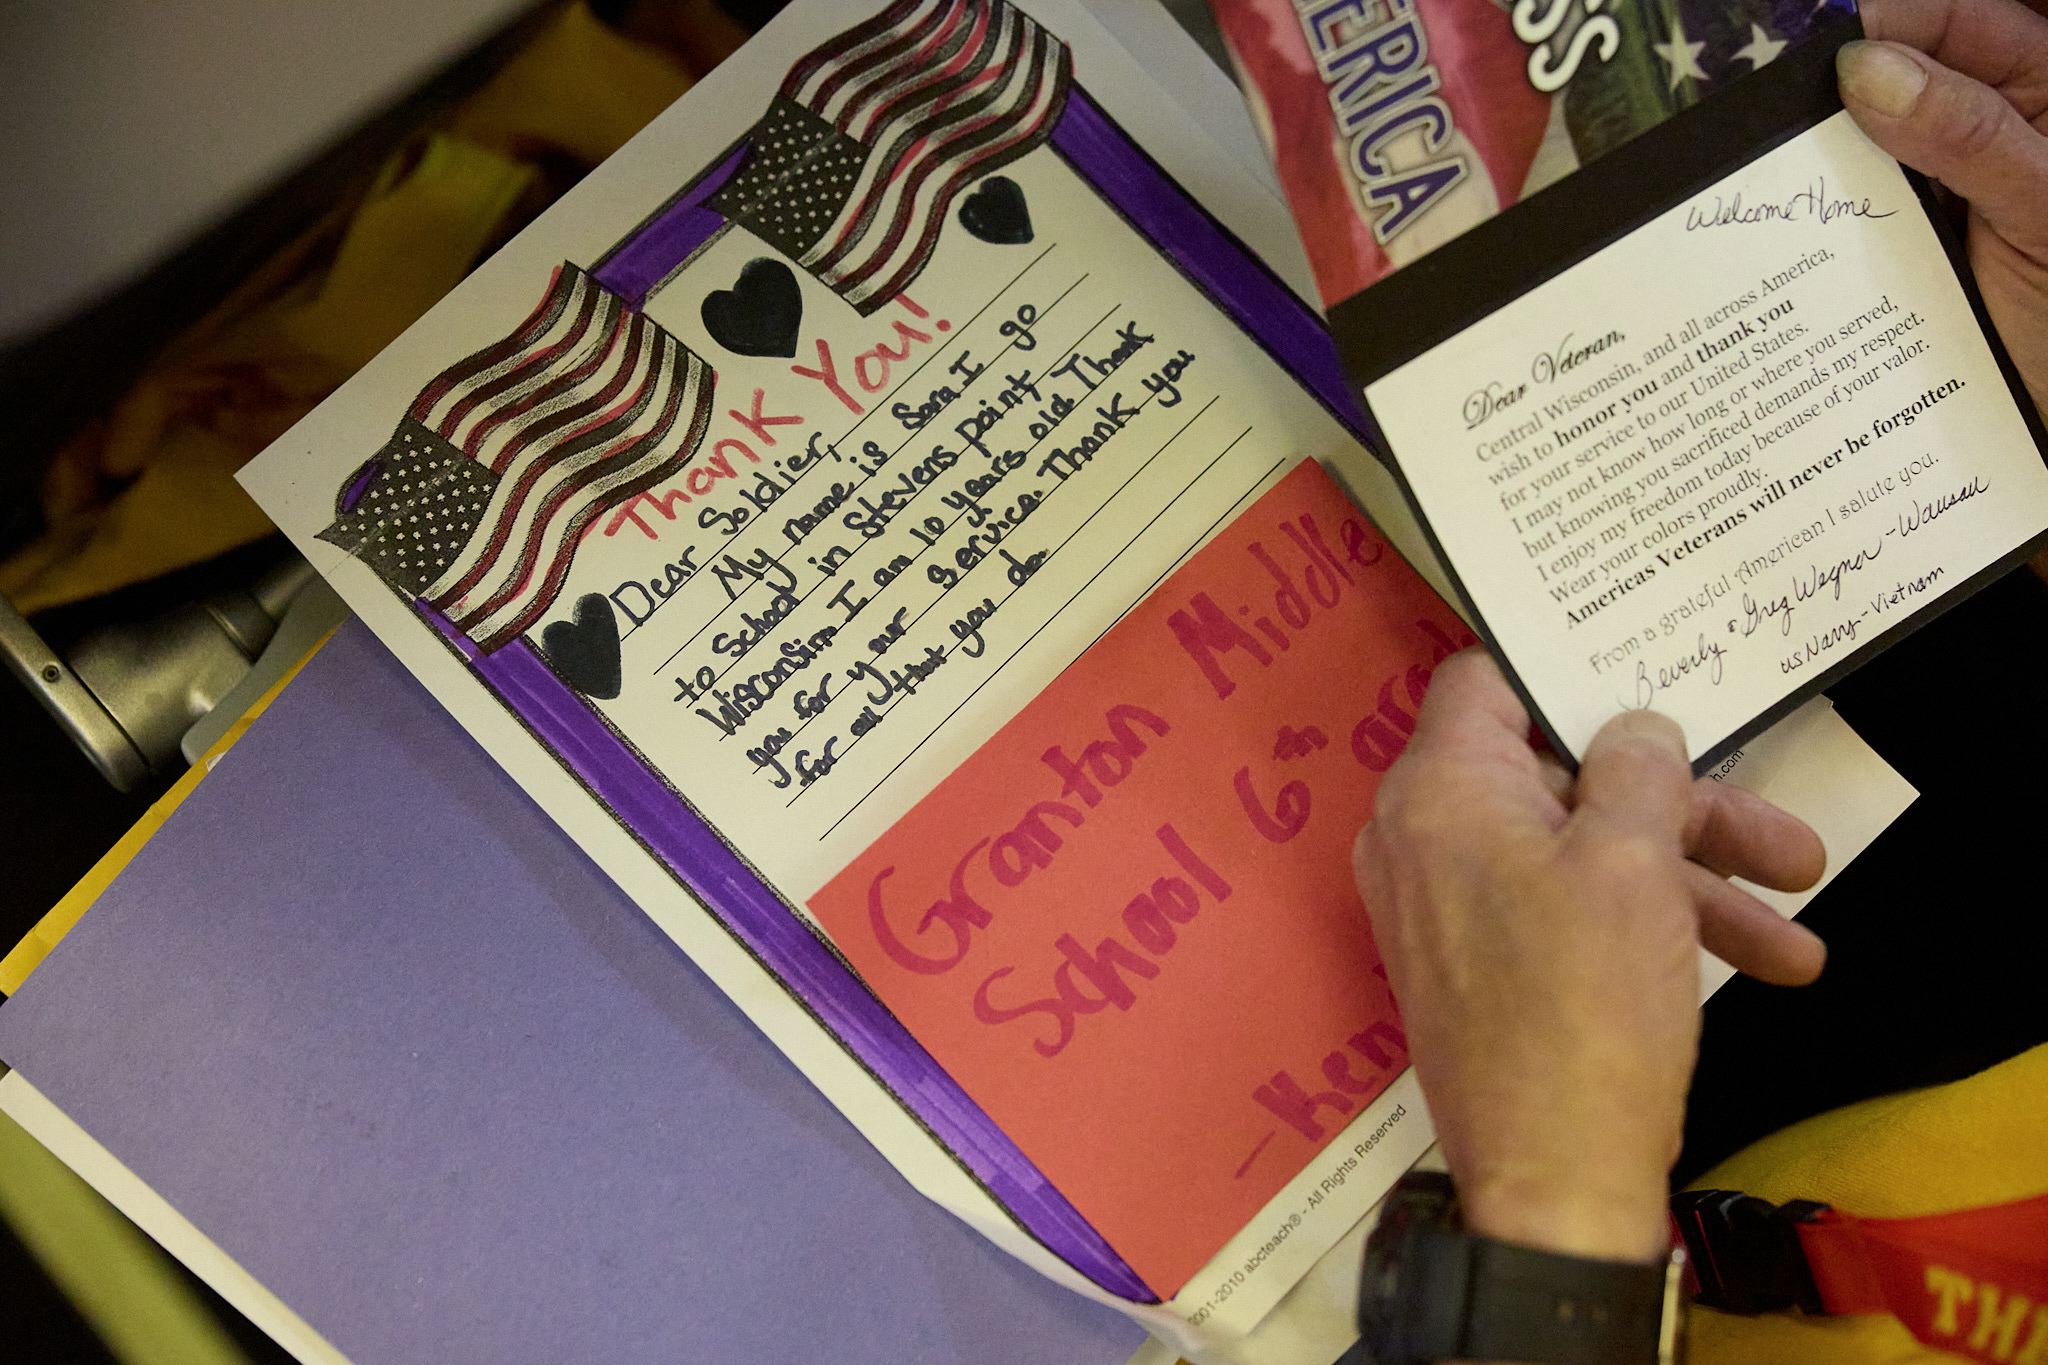 Thank You!
Dear Soldier,
My name is Sara. I go
to School in Stevens point
Wisconsin. I am 10 years old. Thank
you for your service. Thank you
for all that you do.
Granton Middle
School 6th grad
- Ken
001-2010 abcteach® - All Rights Reserved
ERICA
SS
Welcome Home
Dear Veteran,
Central Wisconsin, and all across America,
wish to honor you and thank you
for your service to our United States.
I may not know how long or where you served,
but knowing you sacrificed demands my respect.
I enjoy my freedom today because of your valor.
Wear your colors proudly.
Americas Veterans will never be forgotten.
From a grateful American I salute you.
Beverly & Greg Wegner - Wausau
US Navy - Vietnam
h.com
TH